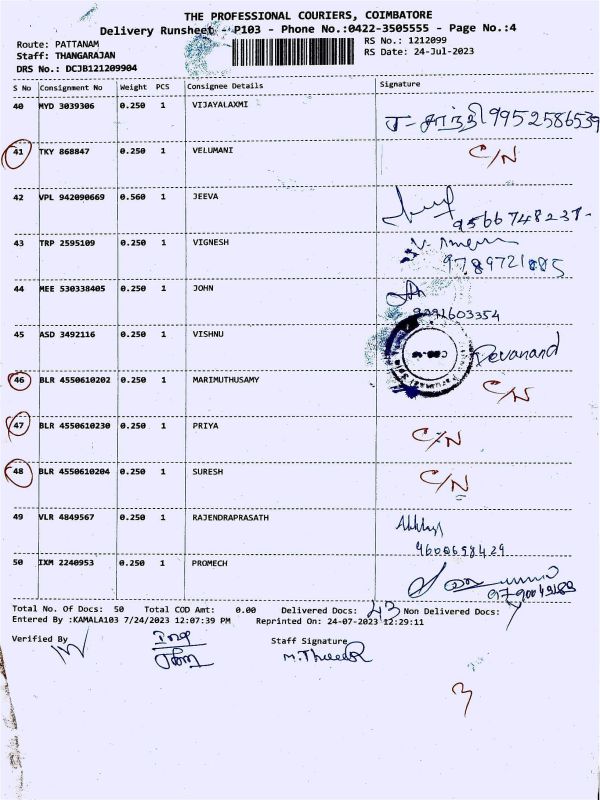 THE PROFESSIONAL COURIERS, COIMBATORE
Delivery Runsheet - P103 - Phone No.:0422-3505555 - Page No.:4
Route: PATTANAM
RS No.: 1212099
Staff: THANGARAJAN
RS Date: 24-Jul-2023
DRS No.: DCJB121209904
S No Consignment No Weight PCS Consignee Details Signature
40 MYD 3039306 0.250 1 VIJAYALAXMI
சாந்தி 9952586539
41 TKY 868847 0.250 1 VELUMANI C/N
42 VPL 942090669 0.560 1 JEEVA
9566748237-
43 TRP 2595109 0.250 1 VIGNESH
44 MEE 530338405 0.250 1 JOHN
45 ASD 3492116 0.250 1 VISHNU Devanand
46 BLR 4550610202 0.250 1 MARIMUTHUSAMY C/N
47 BLR 4550610230 0.250 1 PRIYA C/N
48 BLR 4550610204 0.250 1 SURESH C/N
49 VLR 4849567 0.250 1 RAJENDRAPRASATH
50 IXM 2240953 0.250 1 PROMECH
Total No. Of Docs: 50 Total COD Amt: 0.00 Delivered Docs: 43 Non Delivered Docs: 7
Entered By :KAMALA103 7/24/2023 12:07:39 PM Reprinted On: 24-07-2023 12:29:11
Verified By Staff Signature